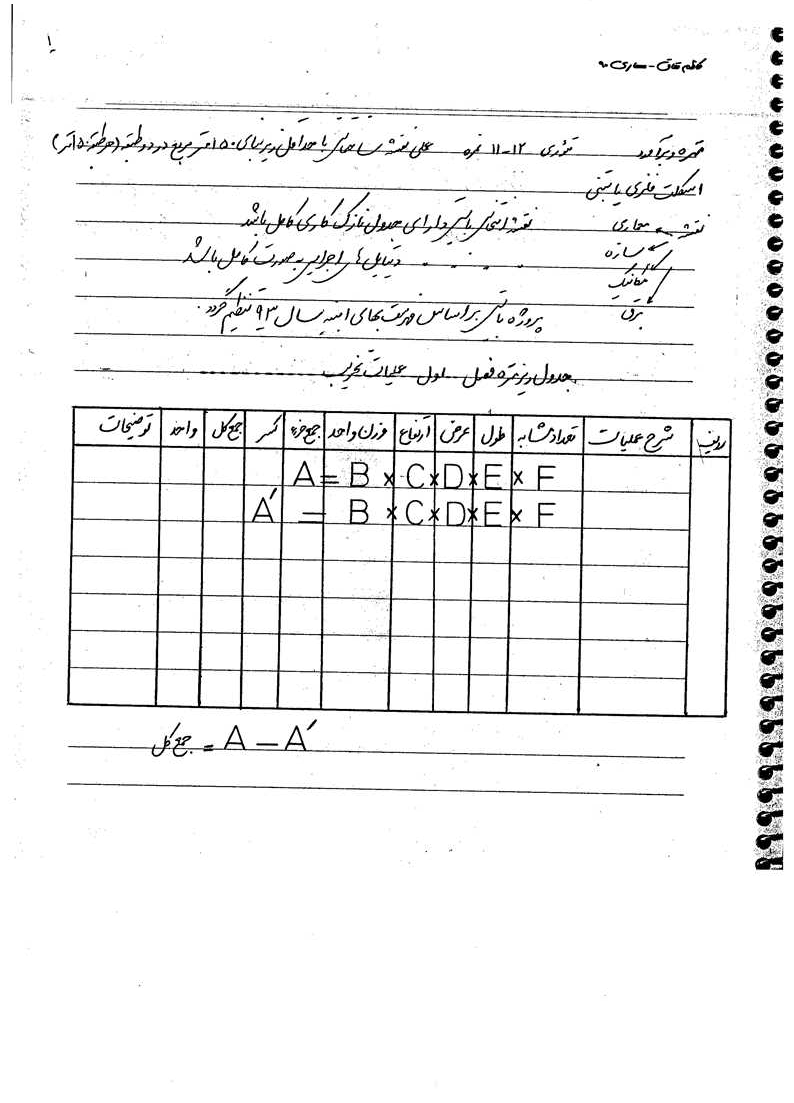 ۱
متره و برآورد تئوری ۱۲-۱۱ نمره عملی نقشه ساختمان با حداقل زیربنای ۱۵۰ متر مربع در دو طبقه (هر طبقه ۵۰ متر)
اسکلت فلزی یا بتنی
نقشه معماری نقشه انتخابی بایستی دارای جدول نازک کاری کامل باشد
سازه دتایل های اجرایی به صورت کامل باشد
مکانیک
برق پروژه بایستی بر اساس فهرست بهای ابنیه سال ۹۳ تنظیم گردد.
جدول ریز متره فصل اول عملیات تخریب ............
ردیف شرح عملیات تعداد مشابه طول عرض ارتفاع وزن واحد جمع جزء کسر جمع کل واحد توضیحات
A = B × C × D × E × F
A′ = B × C × D × E × F
جمع کل = A − A′